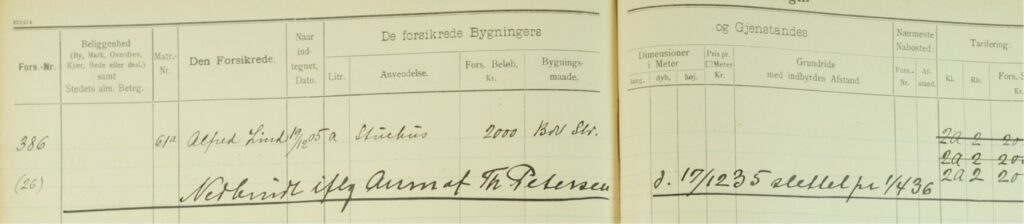 og Gjenstandes
Beliggenhed
(By, Mark, Overdrev,
Kjær, Hede eller desl.)
samt
Stedets alm. Beteg.:
Fors.-Nr.
Matr.-
Nr.
Den Forsikrede.
Naar
ind-
tegnet,
Dato.
De forsikrede Bygningers
Litr.
Anvendelse.
Fors. Beløb,
Kr.
Bygnings-
maade.
Dimensioner
i Meter
lang.
dyb,
høj.
Pris pr.
□Meter
Kr.
Grundrids
med indbyrdes Afstand.
Nærmeste
Nabosted:
Fors.-
Nr.
Af-
stand.
Tarifering:
Kl.
Ris.
Fors.-S
386 61a Alfred Lind 19/12 05 a Stuehus 2000 BoV Str. 2a 2 20
2a 2 20
(26) Nedbrudt iflg Anm af Th Petersen d. 17/12 35 slettet pr 1/4 36 2a 2 20